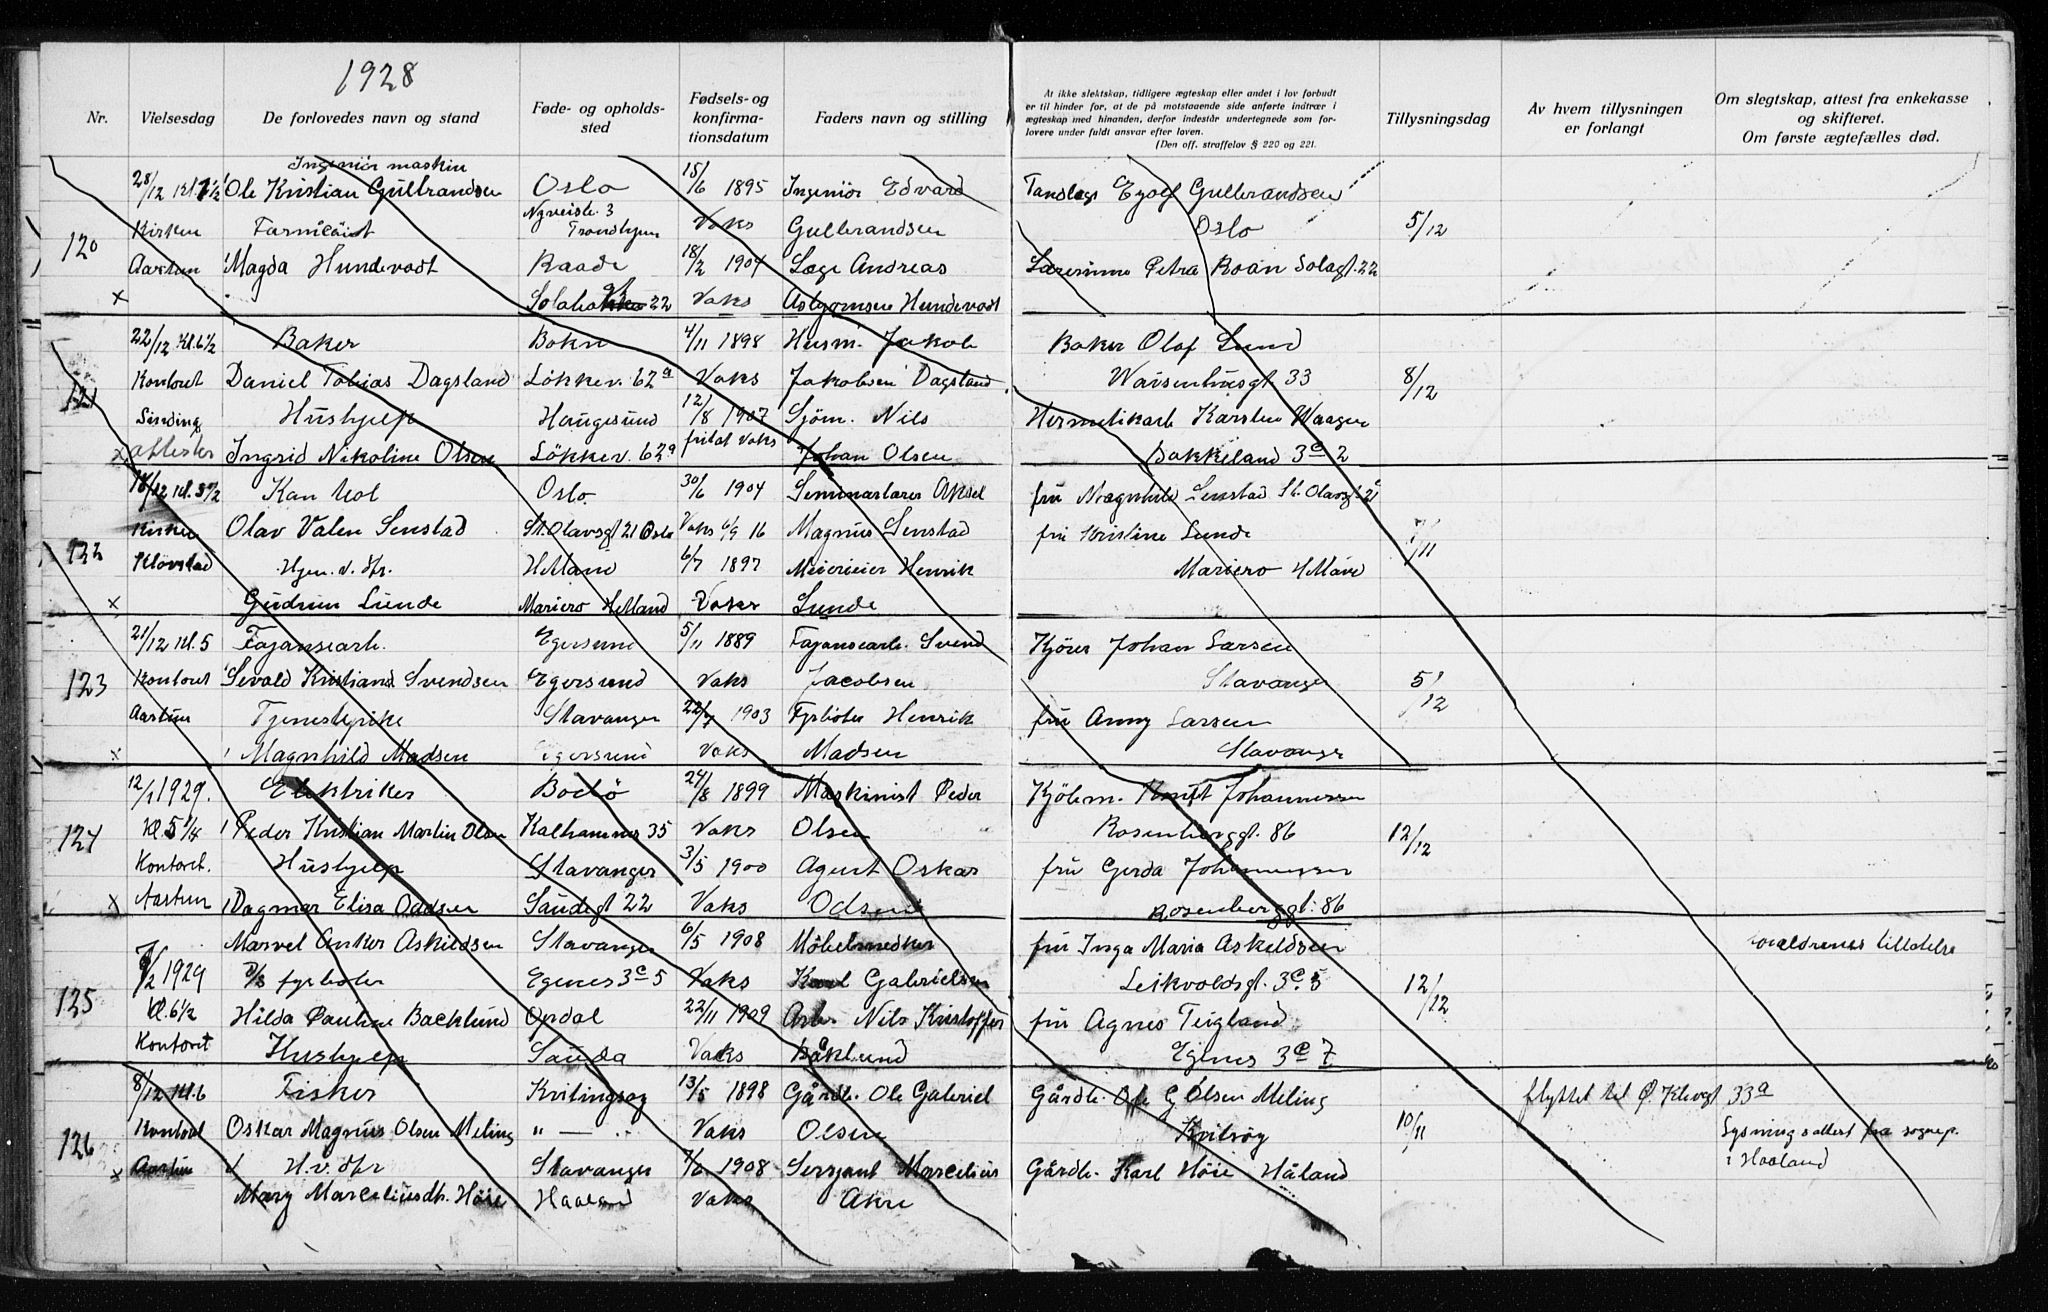 1928
Nr.
Vielsesdag
De forlovedes navn og stand
Føde- og opholds-
sted
Fødsels- og
konfirma-
tionsdatum
Faders navn og stilling
At ikke slektskap, tidligere ægteskap eller andet i lov forbudt
er til hinder for, at de på motstaaende side anførte indtrær i
ægteskap med hinanden, derfor indestår undertegnede som for-
lovere under fuldt ansvar efter loven.
(Den off. straffelov § 220 og 221.
Tillysningsdag
Av hvem tillysningen
er forlangt
Om slegtskap, attest fra enkekasse
og skifteret.
Om første ægtefælles død.
Ingeniör maskin
28/12 Ole Kristian Gulbrandsen Oslo 15/6 1895 Ingeniör Edvard Tandlege Gulbrandsen
120 Kirken Nyveisb. 3 Trondhjem Vaks Gulbrandsen Oslo 5/12
Aastun Magda Hundevadt Raade 18/2 1904 Læge Andreas Lærerinne Petra Roan Solagt. 22
x 22 Vaks Asbjörnsen Hundevadt
22/12 Kl. 6 1/2 Baker Bokn 4/11 1898 Husm. Jakob Baker Olaf Lund
121 Kontoret Daniel Tobias Dagsland Lökkev. 62a Vaks Jakobsen Dagsland Waisenhusgt 33 8/12
Sinding Hushjelp Haugesund 12/8 1907 Sjöm. Nils Hermetikarb Karsten Waagen
x attester Ingrid Nikoline Olsen Lökkev. 62a fritat Vaks Johan Olsen Bakkeland 3c 2
18/12 Kl. Oslo 30/6 1904 Seminarlærer Aksel fru Senstad St. Olavsgt. 21
Kirken Olav Valen Senstad St. Olavsgt 21 Oslo Vaks 16 Magnus Senstad fru Kristine Lunde
122 Klövstad Hjem. v. Hfr. Hetland 6/7 1897 Meierieier Henrik Mariero Hetland 7/11
x Gudrun Lunde Mariero Hetland Vaks Lunde
21/12 Kl. 5 Fajansearb. Egersund 5/11 1889 Fajansearb. Svend Kjörer Johan Larsen
123 Kontoret Sevald Kristian Svendsen Egersund Vaks Jacobsen Stavanger 5/12
Aastun Tjenestepike Stavanger 22/7 1903 Fyrböter Henrik fru Anny Larsen
x Magnhild Madsen Egersund Vaks Madsen Stavanger
12/1 1929. Elektriker Bodö 24/8 1899 Maskinist Peder Kjöbm. Knut Johannessen
124 Kl. 5 1/4 Peder Kristian Martin Olsen Kalhammer 35 Vaks Olsen Rosenberggt. 86 12/12
Kontoret. Hushjelp Stavanger 3/5 1900 Agent Oskar fru Gerda Johannessen
x Aastun Dagmar Elisa Oddsen Saudegt 22 Vaks Odsen Rosenberggt. 86
Marvel Anker Askildsen Stavanger 6/5 1908 Möbelsnedker fru Inga Maria Askeldsen foreldrenes tillatelse
125 /2 1929 D/S fyrböter Egenes 3c 5 Vaks Karl Gabrielsen Leikvoldsgt. 3c. 5 12/12
Kl. 6 1/2 Hilda Pauline Backlund Opdal 22/11 1909 Arb. Nils Kristoffer fru Agnes Teigland
Kontoret Hushjelp Sauda Vaks Båklund Egenes 3c 7
8/12 Kl. 6 Fisker Kvitingsøy 13/5 1898 Gårdbr. Ole Gabriel Gårdbr. Ole G Olsen Meling flyttet til Ø. Klevgt 33a
126 Kontoret Oskar Magnus Olsen Meling " — " Vaks Olsen Kvitsöy 10/11 Lysningsattest fra sognep.
x Aastun H.v. Hfr Stavanger 7/6 1908 Sersjant Marcelius Gårdbr. Karl Höie Håland i Haaland
Mary Marceliusdtr. Höie Haaland Vaks